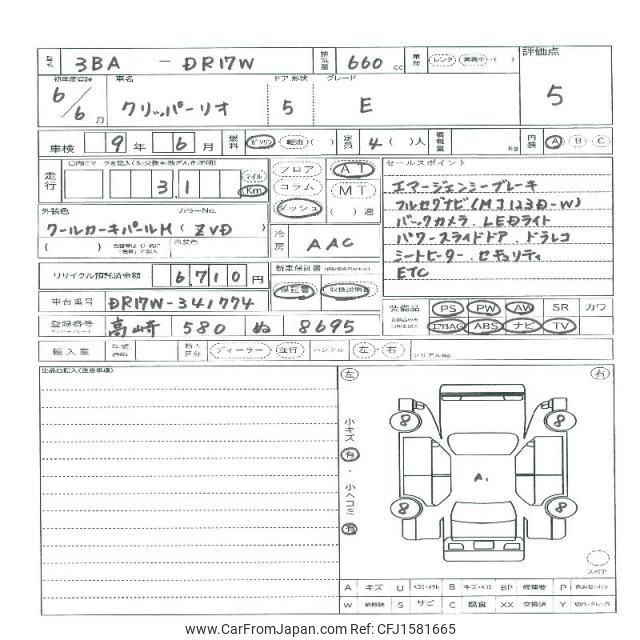 型式 3BA - DR17W 排気量 660 cc 車歴 レンタ・営業中・( ) 評価点
初年度登録 車名 ドア 形状 グレード
6/6月 クリッパーリオ 5 E 5
車検 9年 6月 燃料 ガソリン 軽油・( ) 定員 4( )人 積載量 Kg 内装 A B C
走行 3,1 マイル Km フロア AT セールスポイント
コラム MT
ダッシュ ( )速
外装色 カラーNo.
クールカーキパールM (ZVD) 冷房 AAC
エマージェンシーブレーキ
フルセグナビ(MJ123D-W)
バックカメラ. LEDライト
パワースライドドア. ドラレコ
シートヒーター. セキュリティ
ETC
リサイクル預託済金額 6,710円 新車保証書
保証書 取扱説明書
車台番号 DR17W-341774
登録番号 高崎 580 ぬ 8695
装備品 PS PW AW SR カワ
エアBAG ABS ナビ TV
輸入車 年式 ディーラー・並行 ハンドル 左・右 シリアルNo.
出品店記入(注意事項)
左 右
小キズ 有・小ヘコミ 有
8 8
A1
8 8
スペア
A キズ U B BP P
W S サビ C 腐食 XX 交換済 Y
www.CarFromJapan.com - CFJ1581665